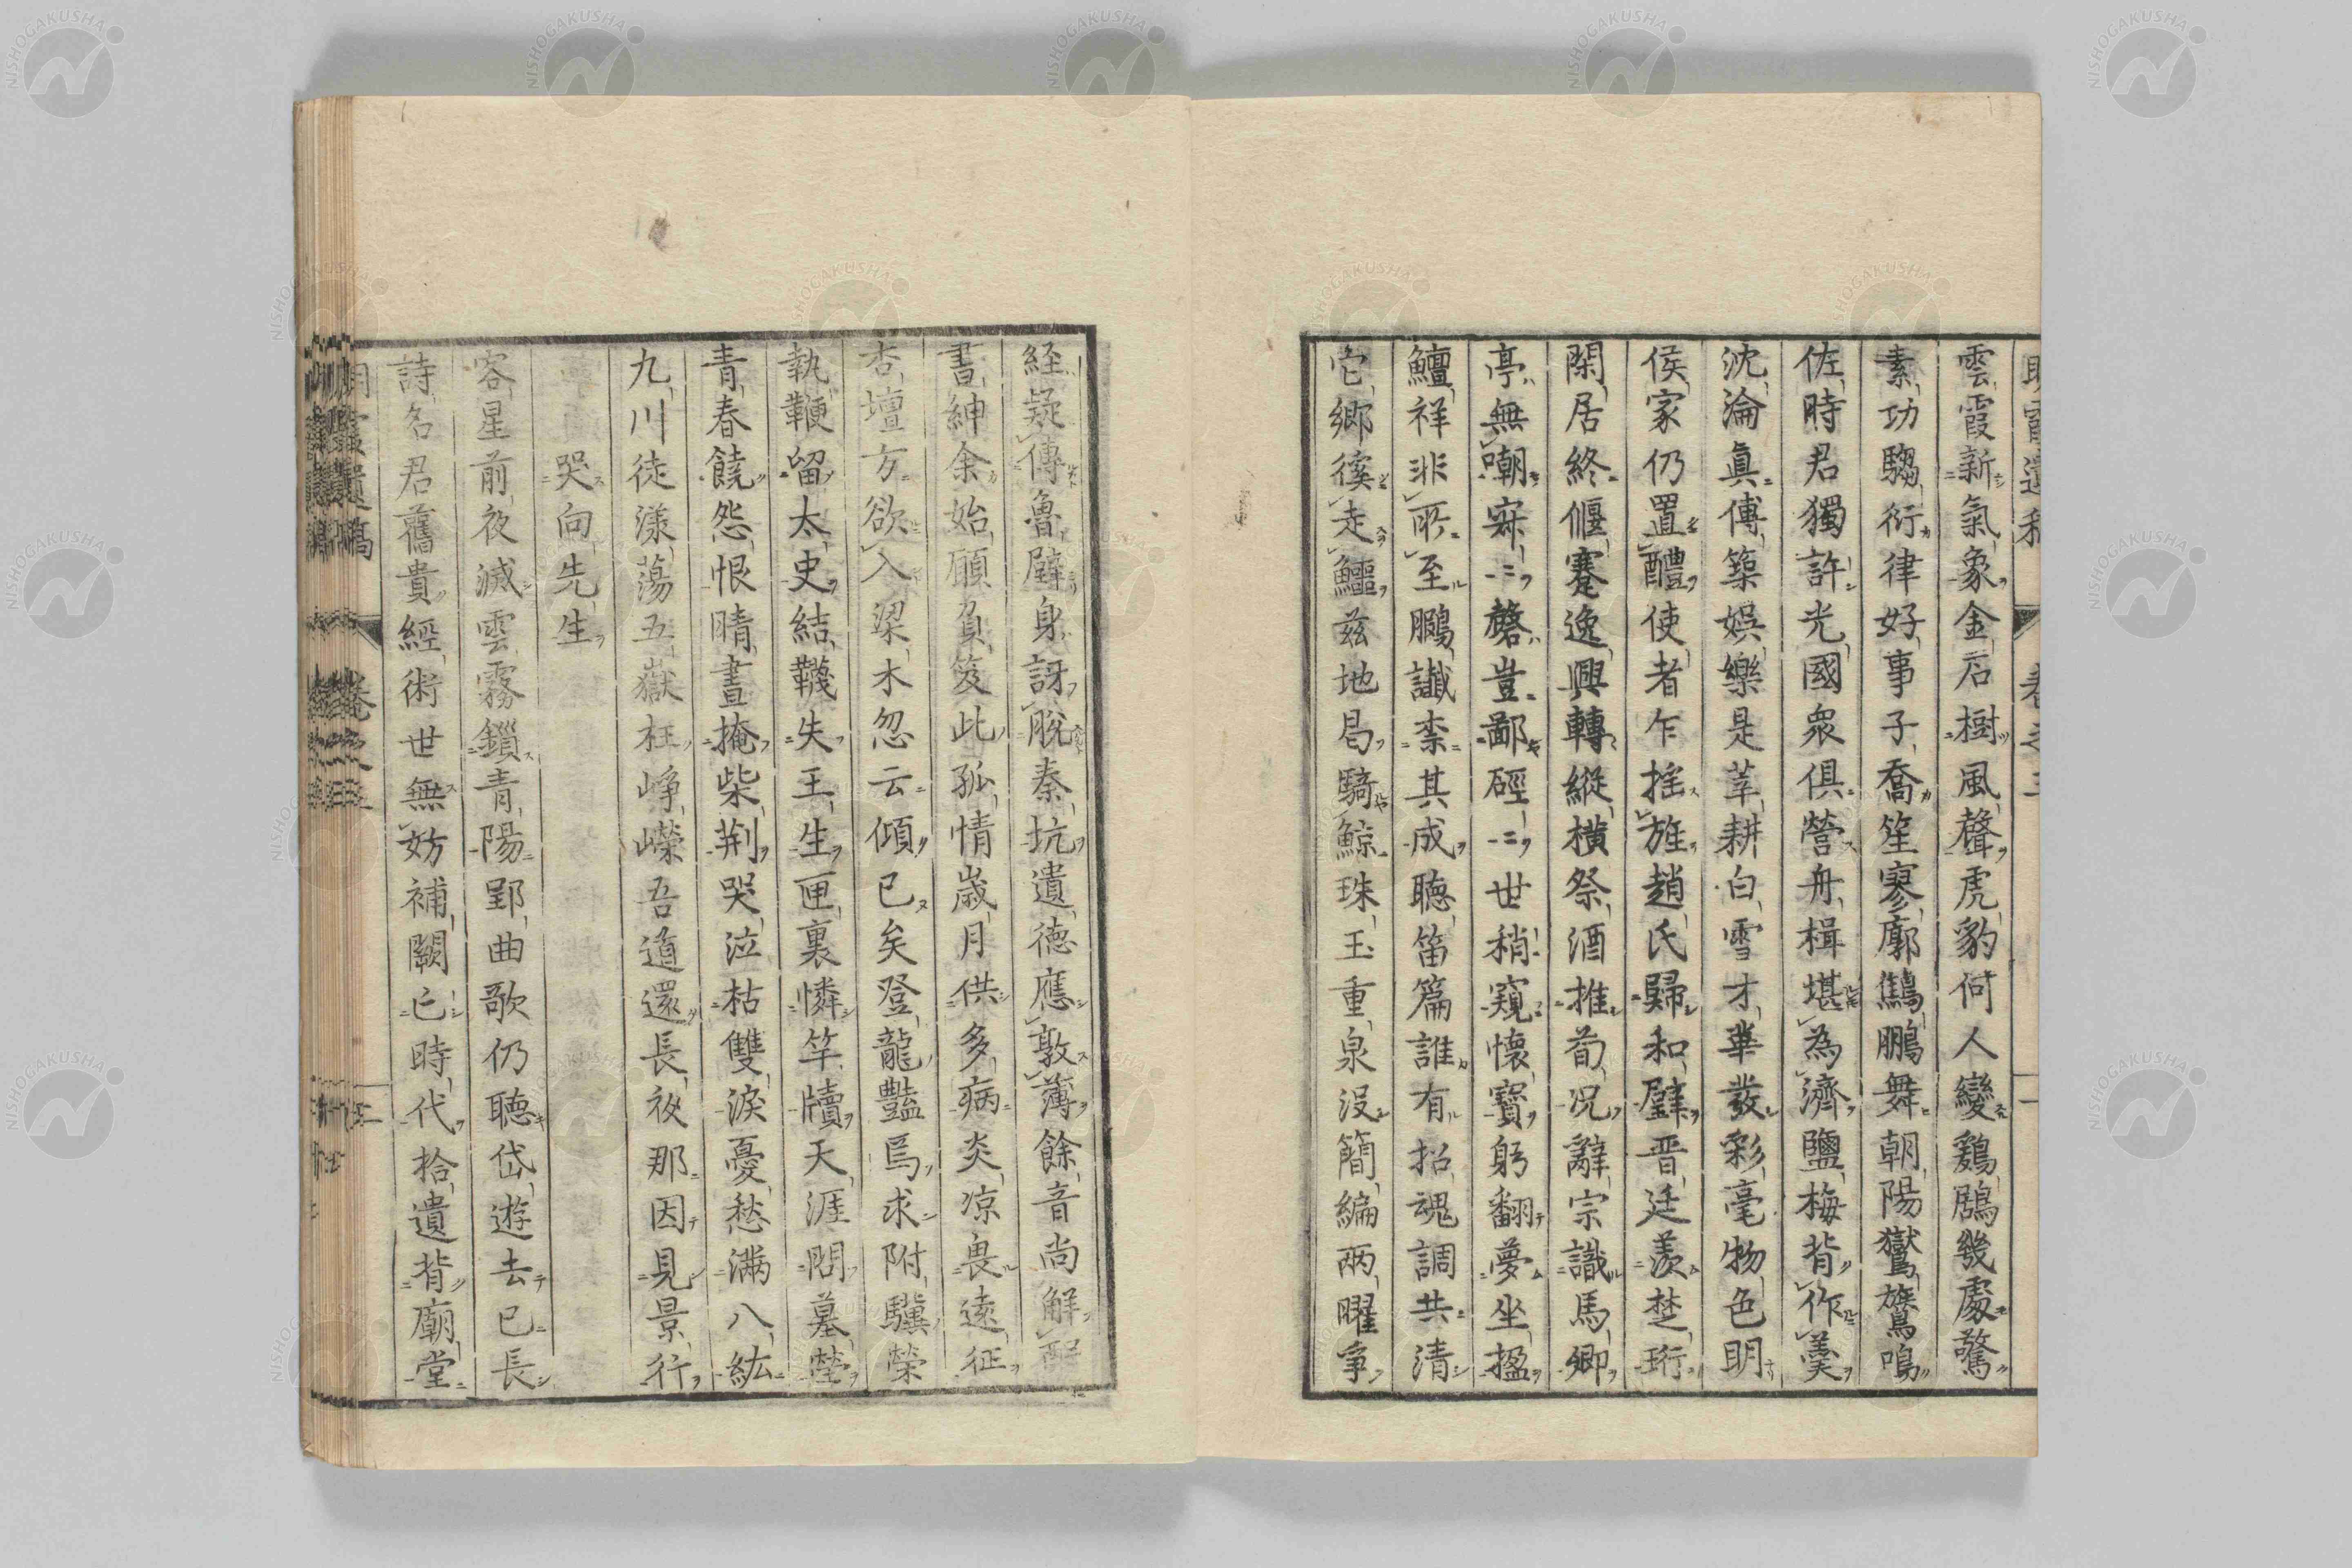 雲霞新氣象金石樹風聲虎豹何人變鷄鶋幾處驚
素功騶衍律好事子喬笙寥廓鷦鵬舞朝陽鸑鷟鳴
佐時君獨許光國衆俱營舟楫堪為濟鹽梅背作羹
沈淪真傅築娯樂是莘耕白雪才華發彩毫物色明
侯家仍置醴使者乍搖旌趙氏歸和璧晋廷羨楚珩
閑居終偃蹇逸興轉縱橫祭酒推荀况辭宗識馬卿
亭無嘲寂二磬豈鄙硜二世稍窺懷寶躬翻夢坐楹
鱣祥非所至鵩讖柰其成聴笛篇誰有招魂調共清
它鄉徯走鱷兹地曷騎鯨珠玉重泉沒簡編兩曜爭
経疑傳魯壁身訝脫秦坑遺德應敦薄餘音尚觧酲
書紳余始願負笈此孤情歳月供多病炎凉畏遠征
杏壇方欲入梁木忽云傾已矣登龍豔焉求附驥榮
執鞭留太史結韈失王生匣裏憐竿牘天涯問墓塋
青春饒怨恨晴晝掩柴荆哭泣枯雙淚憂愁滿八紘
九川徒漾蕩五嶽枉崢嶸吾道還長夜那因見景行
哭向先生
客星前夜滅雲霧鎖青陽郢曲歌仍聴岱遊去已長
詩名君舊貴經術世無妨補闕已時代拾遺背廟堂
明霞遺稿
卷之三
NISHOGAKUSHA